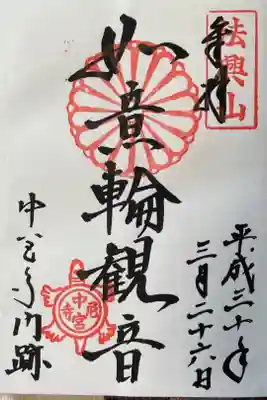 法興山
奉拝
平成三十年
三月二十六日
如意輪観音
中宮寺門跡
中宮寺印